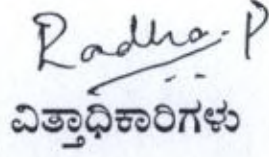 Radha. P
ವಿತ್ತಾಧಿಕಾರಿಗಳು